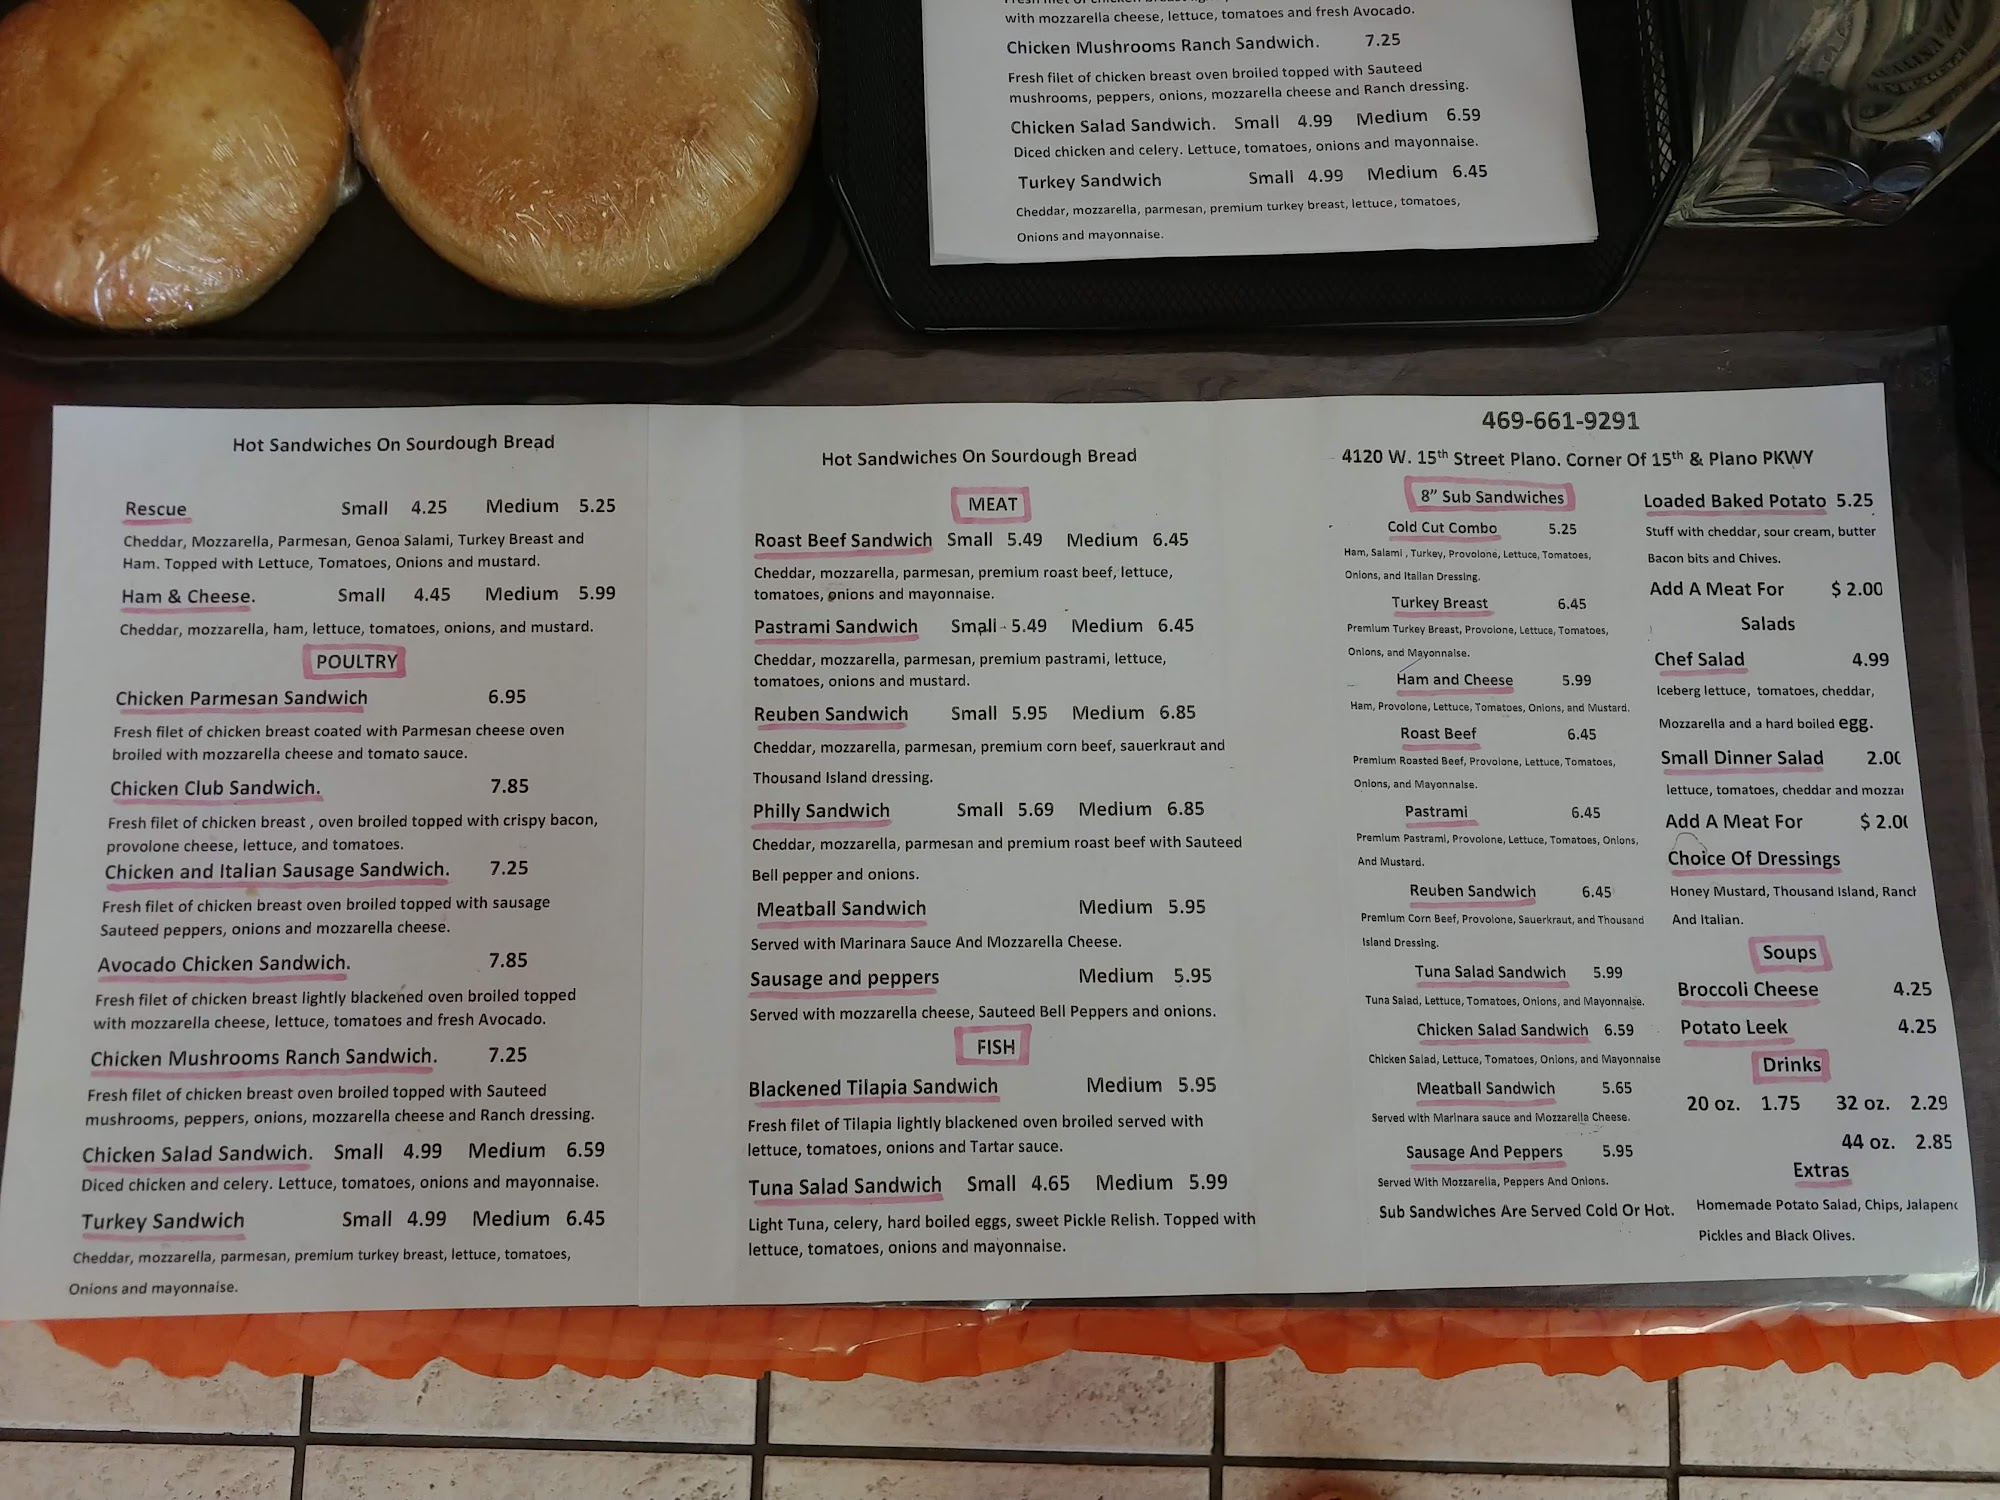 with mozzarella cheese, lettuce, tomatoes and fresh Avocado.
Chicken Mushrooms Ranch Sandwich. 7.25
Fresh filet of chicken breast oven broiled topped with Sauteed
mushrooms, peppers, onions, mozzarella cheese and Ranch dressing.
Chicken Salad Sandwich. Small 4.99 Medium 6.59
Diced chicken and celery. Lettuce, tomatoes, onions and mayonnaise.
Turkey Sandwich Small 4.99 Medium 6.45
Cheddar, mozzarella, parmesan, premium turkey breast, lettuce, tomatoes,
Onions and mayonnaise.
Hot Sandwiches On Sourdough Bread
Rescue Small 4.25 Medium 5.25
Cheddar, Mozzarella, Parmesan, Genoa Salami, Turkey Breast and
Ham. Topped with Lettuce, Tomatoes, Onions and mustard.
Ham & Cheese. Small 4.45 Medium 5.99
Cheddar, mozzarella, ham, lettuce, tomatoes, onions, and mustard.
POULTRY
Chicken Parmesan Sandwich 6.95
Fresh filet of chicken breast coated with Parmesan cheese oven
broiled with mozzarella cheese and tomato sauce.
Chicken Club Sandwich. 7.85
Fresh filet of chicken breast , oven broiled topped with crispy bacon,
provolone cheese, lettuce, and tomatoes.
Chicken and Italian Sausage Sandwich. 7.25
Fresh filet of chicken breast oven broiled topped with sausage
Sauteed peppers, onions and mozzarella cheese.
Avocado Chicken Sandwich. 7.85
Fresh filet of chicken breast lightly blackened oven broiled topped
with mozzarella cheese, lettuce, tomatoes and fresh Avocado.
Chicken Mushrooms Ranch Sandwich. 7.25
Fresh filet of chicken breast oven broiled topped with Sauteed
mushrooms, peppers, onions, mozzarella cheese and Ranch dressing.
Chicken Salad Sandwich. Small 4.99 Medium 6.59
Diced chicken and celery. Lettuce, tomatoes, onions and mayonnaise.
Turkey Sandwich Small 4.99 Medium 6.45
Cheddar, mozzarella, parmesan, premium turkey breast, lettuce, tomatoes,
Onions and mayonnaise.
Hot Sandwiches On Sourdough Bread
MEAT
Roast Beef Sandwich Small 5.49 Medium 6.45
Cheddar, mozzarella, parmesan, premium roast beef, lettuce,
tomatoes, onions and mayonnaise.
Pastrami Sandwich Small 5.49 Medium 6.45
Cheddar, mozzarella, parmesan, premium pastrami, lettuce,
tomatoes, onions and mustard.
Reuben Sandwich Small 5.95 Medium 6.85
Cheddar, mozzarella, parmesan, premium corn beef, sauerkraut and
Thousand Island dressing.
Philly Sandwich Small 5.69 Medium 6.85
Cheddar, mozzarella, parmesan and premium roast beef with Sauteed
Bell pepper and onions.
Meatball Sandwich Medium 5.95
Served with Marinara Sauce And Mozzarella Cheese.
Sausage and peppers Medium 5.95
Served with mozzarella cheese, Sauteed Bell Peppers and onions.
FISH
Blackened Tilapia Sandwich Medium 5.95
Fresh filet of Tilapia lightly blackened oven broiled served with
lettuce, tomatoes, onions and Tartar sauce.
Tuna Salad Sandwich Small 4.65 Medium 5.99
Light Tuna, celery, hard boiled eggs, sweet Pickle Relish. Topped with
lettuce, tomatoes, onions and mayonnaise.
469-661-9291
4120 W. 15th Street Plano. Corner Of 15th & Plano PKWY
8” Sub Sandwiches
Cold Cut Combo 5.25
Ham, Salami , Turkey, Provolone, Lettuce, Tomatoes,
Onions, and Italian Dressing.
Turkey Breast 6.45
Premium Turkey Breast, Provolone, Lettuce, Tomatoes,
Onions, and Mayonnaise.
Ham and Cheese 5.99
Ham, Provolone, Lettuce, Tomatoes, Onions, and Mustard.
Roast Beef 6.45
Premium Roasted Beef, Provolone, Lettuce, Tomatoes,
Onions, and Mayonnaise.
Pastrami 6.45
Premium Pastrami, Provolone, Lettuce, Tomatoes, Onions,
And Mustard.
Reuben Sandwich 6.45
Premium Corn Beef, Provolone, Sauerkraut, and Thousand
Island Dressing.
Tuna Salad Sandwich 5.99
Tuna Salad, Lettuce, Tomatoes, Onions, and Mayonnaise.
Chicken Salad Sandwich 6.59
Chicken Salad, Lettuce, Tomatoes, Onions, and Mayonnaise
Meatball Sandwich 5.65
Served with Marinara sauce and Mozzarella Cheese.
Sausage And Peppers 5.95
Served With Mozzarella, Peppers And Onions.
Sub Sandwiches Are Served Cold Or Hot.
Loaded Baked Potato 5.25
Stuff with cheddar, sour cream, butter
Bacon bits and Chives.
Add A Meat For $ 2.00
Salads
Chef Salad 4.99
Iceberg lettuce, tomatoes, cheddar,
Mozzarella and a hard boiled egg.
Small Dinner Salad 2.00
lettuce, tomatoes, cheddar and mozzar
Add A Meat For $ 2.00
Choice Of Dressings
Honey Mustard, Thousand Island, Ranch
And Italian.
Soups
Broccoli Cheese 4.25
Potato Leek 4.25
Drinks
20 oz. 1.75 32 oz. 2.29
44 oz. 2.85
Extras
Homemade Potato Salad, Chips, Jalapeno
Pickles and Black Olives.